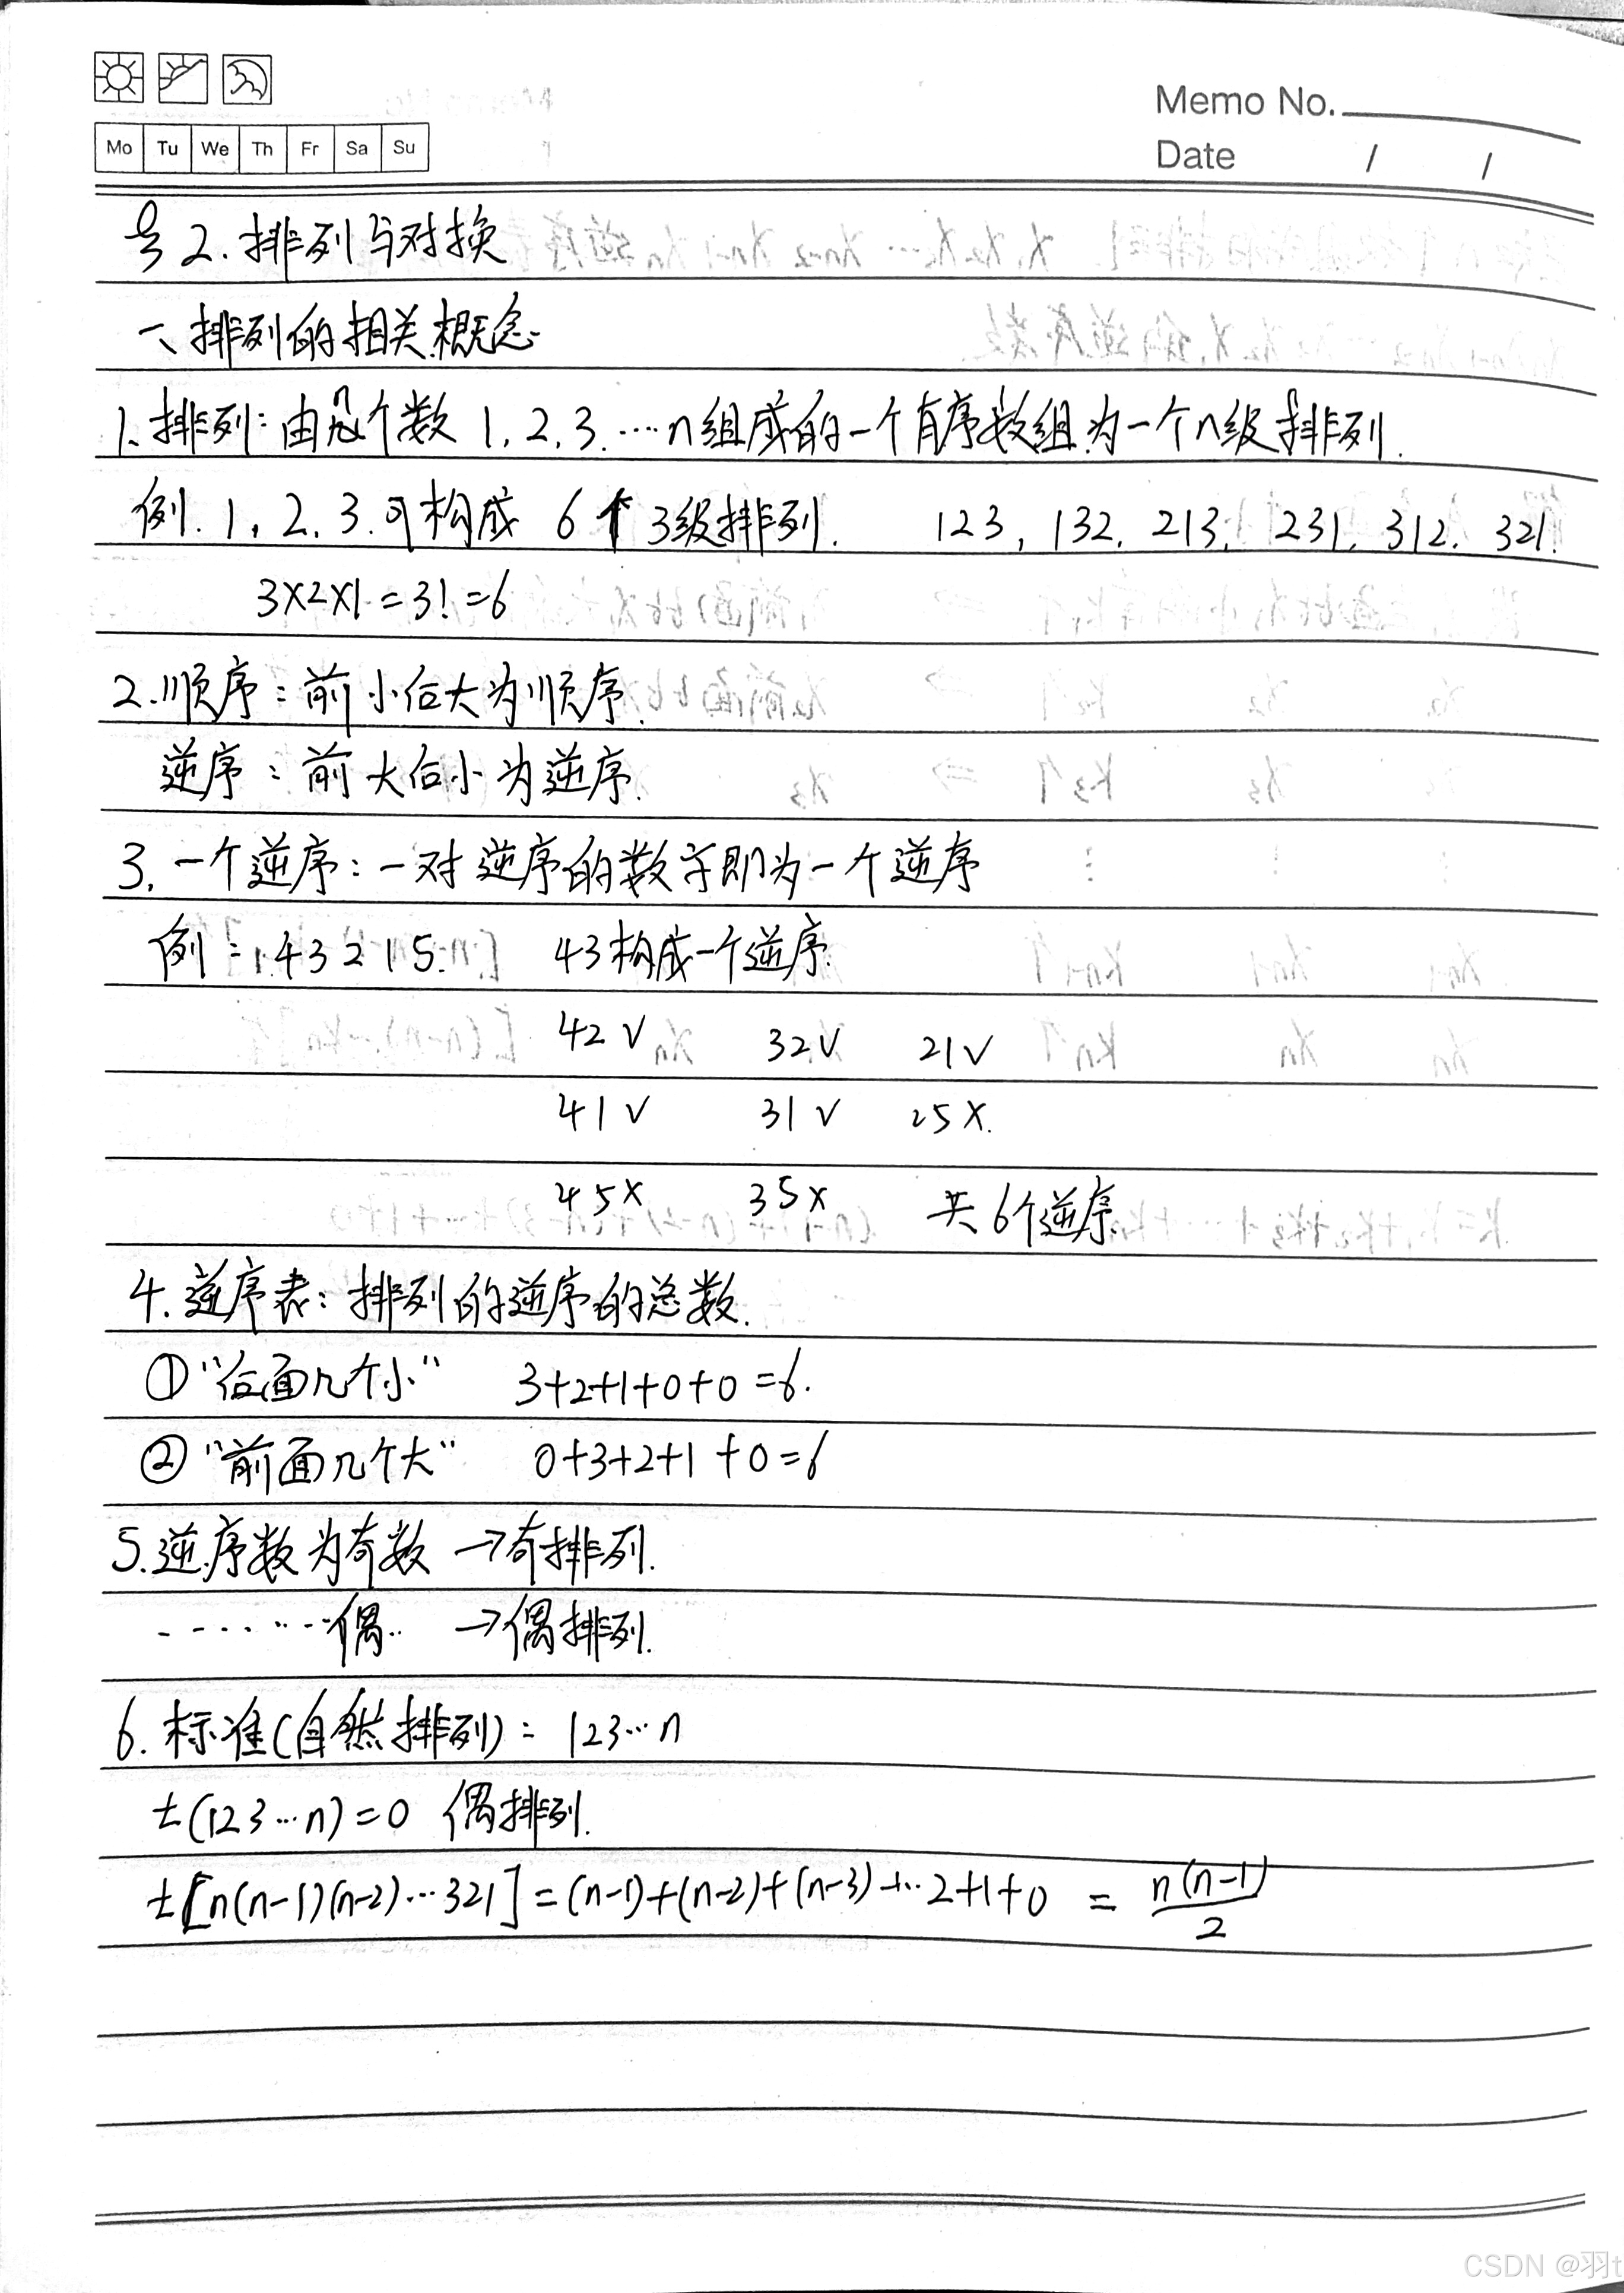 Memo No.
Mo Tu We Th Fr Sa Su
Date / /
§2.排列与对换
一、排列的相关概念
1.排列:由n个数1,2,3.…n组成的一个有序数组为一个n级排列.
例.1,2,3.可构成 6个3级排列. 123,132,213,231,312,321.
3×2×1=3!=6
2.顺序:前小后大为顺序.
逆序:前大后小为逆序.
3.一个逆序:一对逆序的数字即为一个逆序
例:43215. 43构成一个逆序.
42√ 32√ 21√
41√ 31√ 25×.
45× 35× 共6个逆序.
4.逆序表:排列的逆序的总数.
①"后面几个小" 3+2+1+0+0=6.
②"前面几个大" 0+3+2+1+0=6
5.逆序数为奇数→奇排列.
………偶..→偶排列.
6.标准(自然排列):123…n
t(123…n)=0 偶排列.
t[n(n-1)(n-2)…321]=(n-1)+(n-2)+(n-3)+…2+1+0 = n(n-1)/2
CSDN @羽